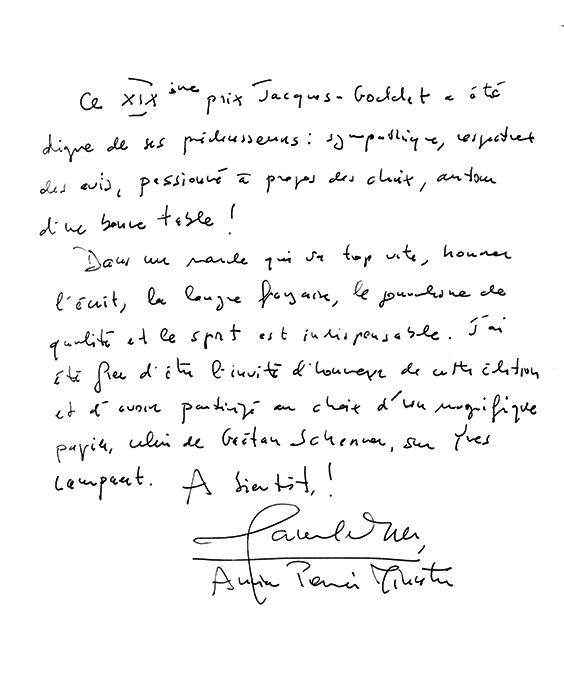 Ce XIXème prix Jacques-Goddet a été
digne de ses prédécesseurs : sympathique, respectueux
des avis, passionné à propos des choix, autour
d'une bonne table !
Dans un monde qui va trop vite, honorer
l'écrit, la langue française, le journalisme de
qualité et le sport est indispensable. J'ai
été fier d'être l'invité d'honneur de cette édition
et d'avoir participé au choix d'un magnifique
papier, celui de Gaétan Scherrer, sur Yves
Lampaert. A bientôt, !
Ancien Premier Ministre